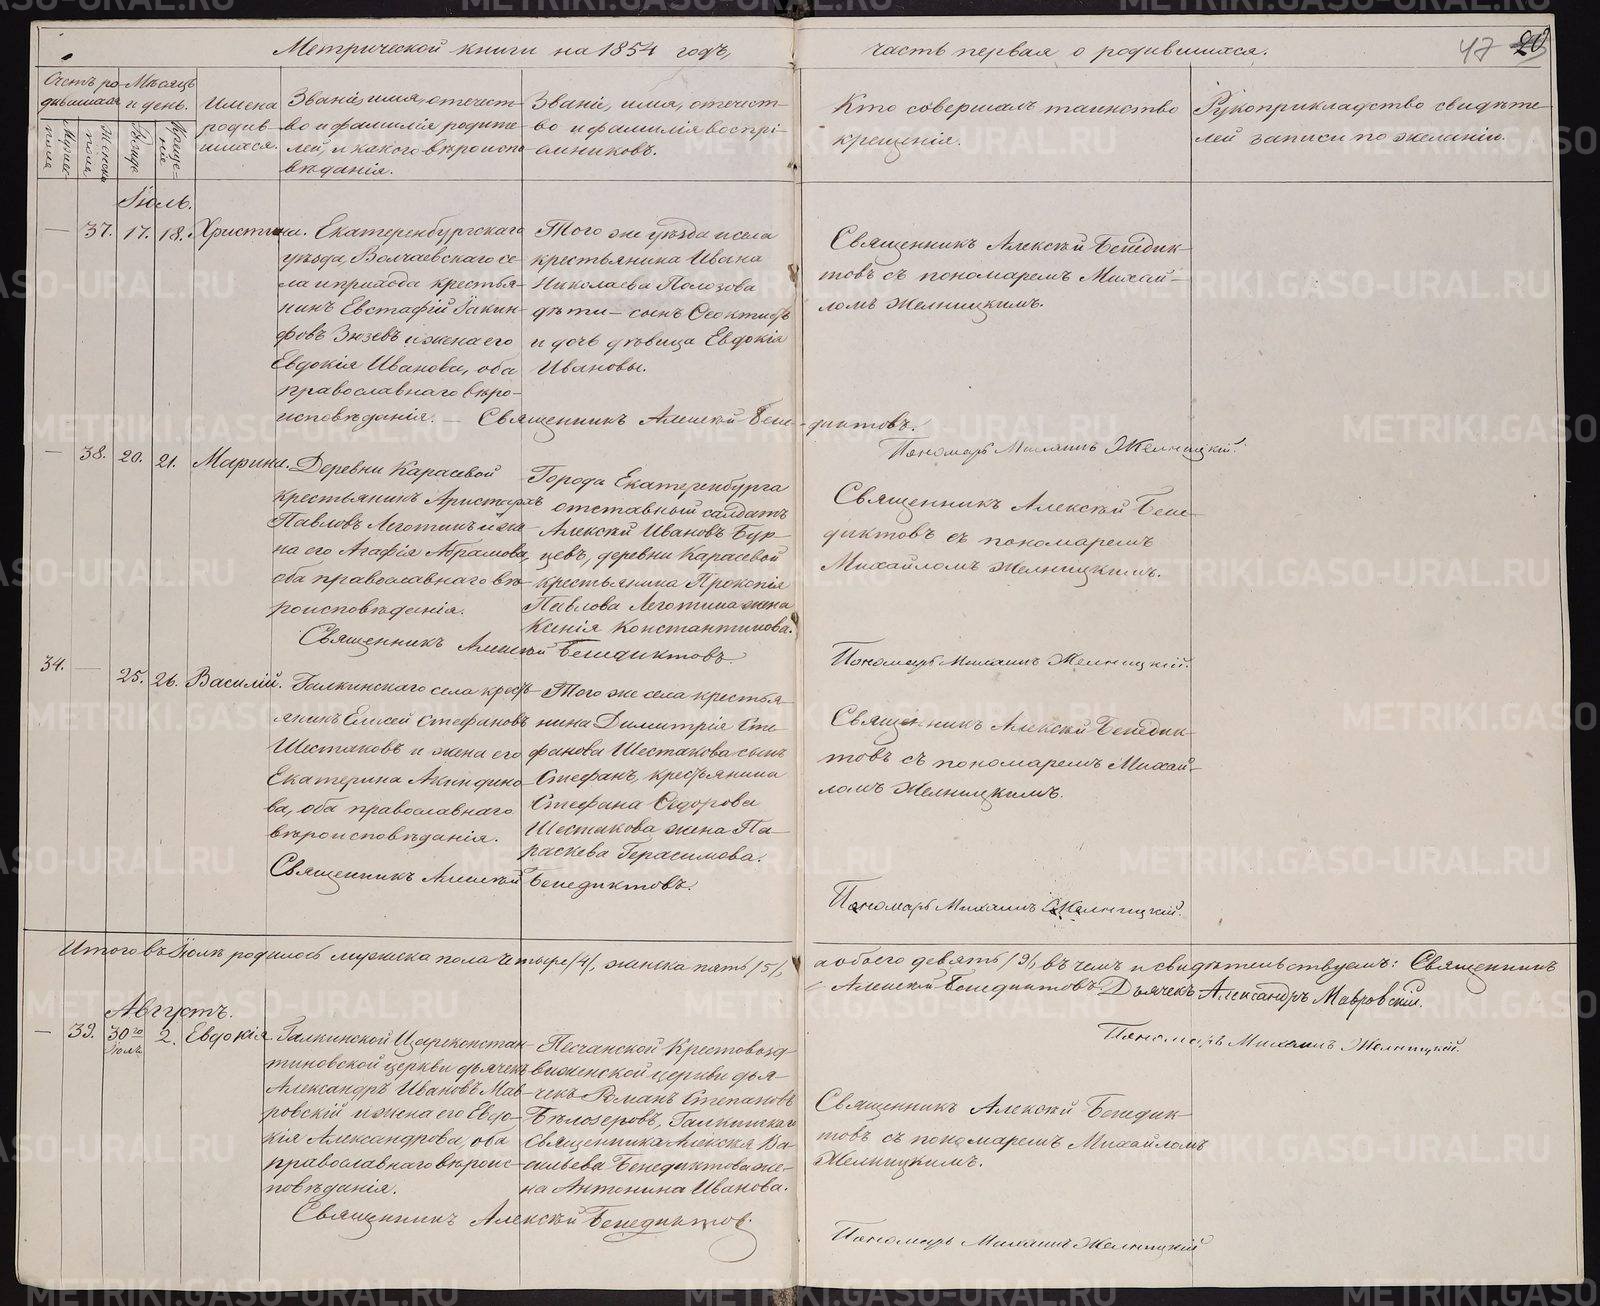 Метрической книги на 1854 годъ,
часть первая о родившихся.
47 20
Счетъ ро-
дившихся
Мѣсяцъ
и день.
Мужес-
поля
Женска
поля
Рожде
Креще=
ніе
Имена
родив-
шихся.
Званіе, имя, отечест-
во и фамилія родите-
лей, и какого вѣроиспо
вѣданія.
Званіе, имя, отечест-
во и фамилія воспрі-
емниковъ.
Кто совершалъ таинство
крещенія.
Рукоприкладство свидѣте-
лей записи по желанію.
Іюль.
— 37. 17. 18. Христина.
Екатеренбургскаго
уѣзда, Волчаевскаго се-
ла и прихода крестья-
нинъ Евстафій Іакин-
фовъ Зюзевъ и жена его
Евдокія Иванова, оба
православнаго вѣро-
исповѣданія. —
Того же уѣзда и села
крестьянина Ивана
Николаева Полозова
дѣти — сынъ Ѳеоктистъ
и дочь дѣвица Евдокія
Ивановы.
Священникъ Алексѣй Бенедик-
товъ съ пономаремъ Михай-
ломъ Желницкимъ.
Священникъ Алексѣй Бене-
диктовъ.
Пономарь Михаилъ Желницкій.
— 38. 20. 21. Марина.
Деревни Карасевой
крестьянинъ Аристархъ
Павловъ Леготинъ и же
на его Агафія Абрамова,
оба православнаго вѣ-
роисповѣданія.
Города Екатеренбурга
отставный салдатъ
Алексѣй Ивановъ Бур-
цевъ, деревни Карасевой
крестьянина Прокопія
Павлова Леготина жена
Ксенія Константинова.
Священникъ Алексѣй Бене-
диктовъ съ пономаремъ
Михайломъ Желницкимъ.
Священникъ Алексѣй Бенедиктовъ.
Пономарь Михаилъ Желницкій.
34. — 25. 26. Василій.
Галкинскаго села кресть-
янинъ Елисей Стефановъ
Шестаковъ и жена его
Екатерина Акиндино-
ва, оба православнаго
вѣроисповѣданія.
Того же села крестья-
нина Димитрія Сте-
фанова Шестакова сынъ
Стефанъ, крестьянина
Стефана Ѳедорова
Шестакова жена Па-
раскева Герасимова.
Священникъ Алексѣй Бенедик-
товъ съ пономаремъ Михай-
ломъ Желницкимъ.
Священникъ Алексѣй Бенедиктовъ.
Пономарь Михаилъ Желницкій.
Итого въ Іюлѣ родилось мужеска пола четыре /4/, женска пять /5/,
а обоего девять /9/, въ чемъ и свидѣтельствуемъ: Священникъ
Алексѣй Бенедиктовъ Дьячекъ Александръ Мавровскій.
Пономарь Михаилъ Желницкій.
Августъ.
— 39. 30го Іюля 2. Евдокія.
Галкинской Цареконстан-
тиновской церкви дьячекъ
Александръ Ивановъ Мав-
ровскій и жена его Евдо-
кія Александрова, оба
православнаго вѣроис-
повѣданія.
Песчанской Крестовозд-
виженской церкви дья-
чекъ Романъ Степановъ
Бѣлозеровъ, Галкинскаго
Священника Алексѣя Ва-
сильева Бенедиктова же-
на Антонина Иванова.
Священникъ Алексѣй Бенедик-
товъ съ пономаремъ Михайломъ
Желницкимъ.
Священникъ Алексѣй Бенедиктовъ.
Пономарь Михаилъ Желницкій
METRIKI.GASO-URAL.RU